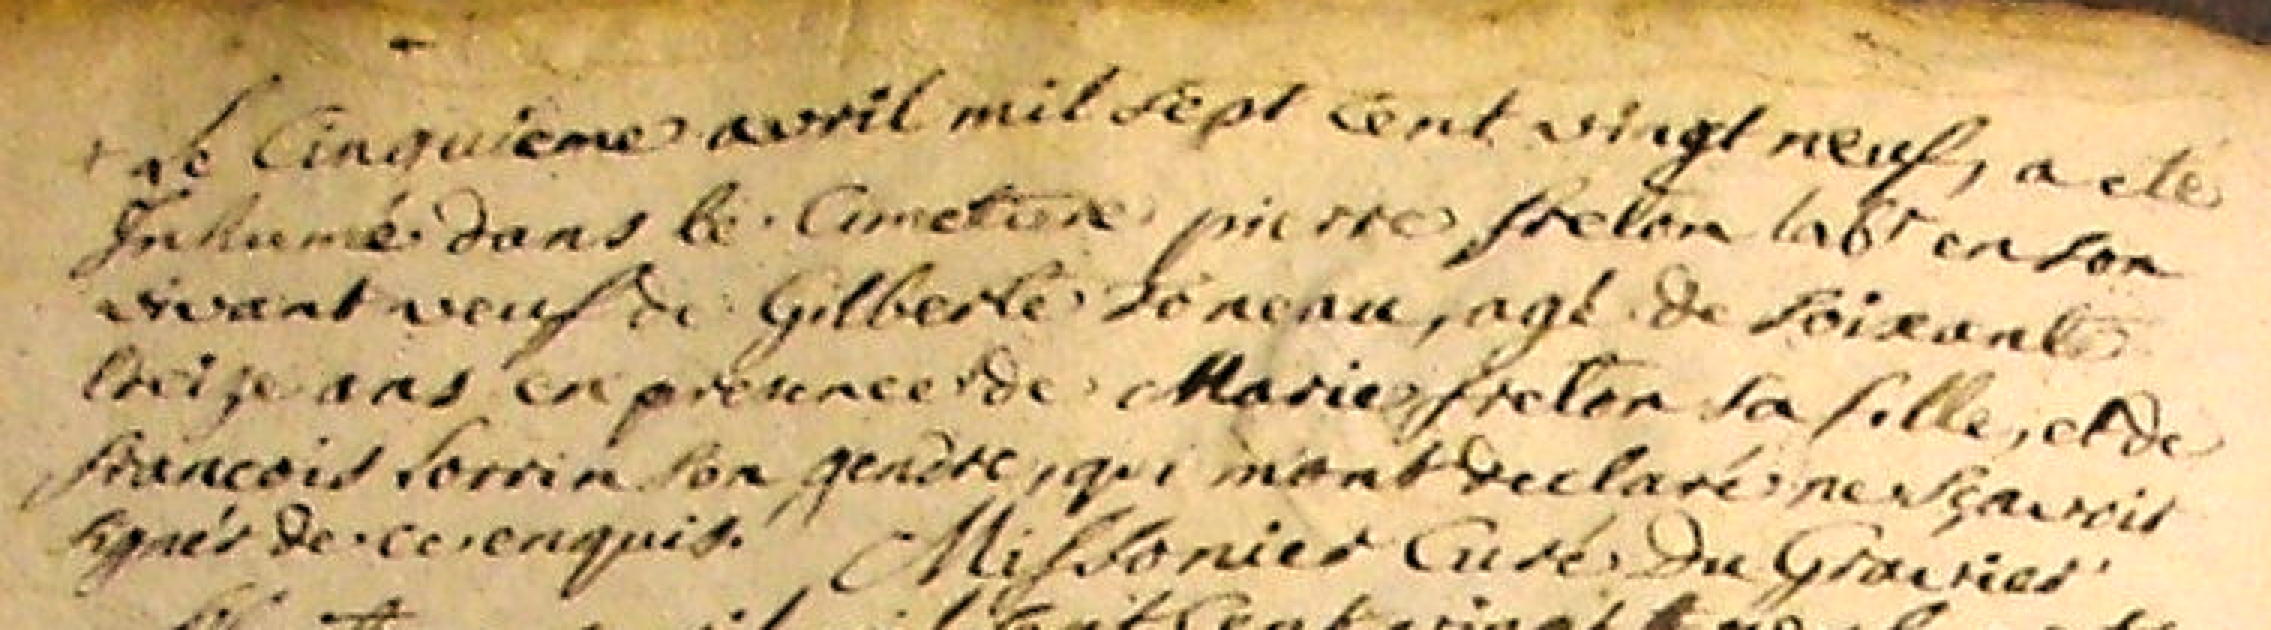 Le Cinquieme avril mil sept cent vingt neuf, a eté
Inhumé dans le Cimetiere pierre freton labr en son
vivant veuf de Gilberte agé de soixante
treize ans en presence de Marie freton sa fille, et de
françois Sorrin son gendre, qui m'ont declaré ne sçavoir
signer de ce enquis. Missonier Curé Du Gravier